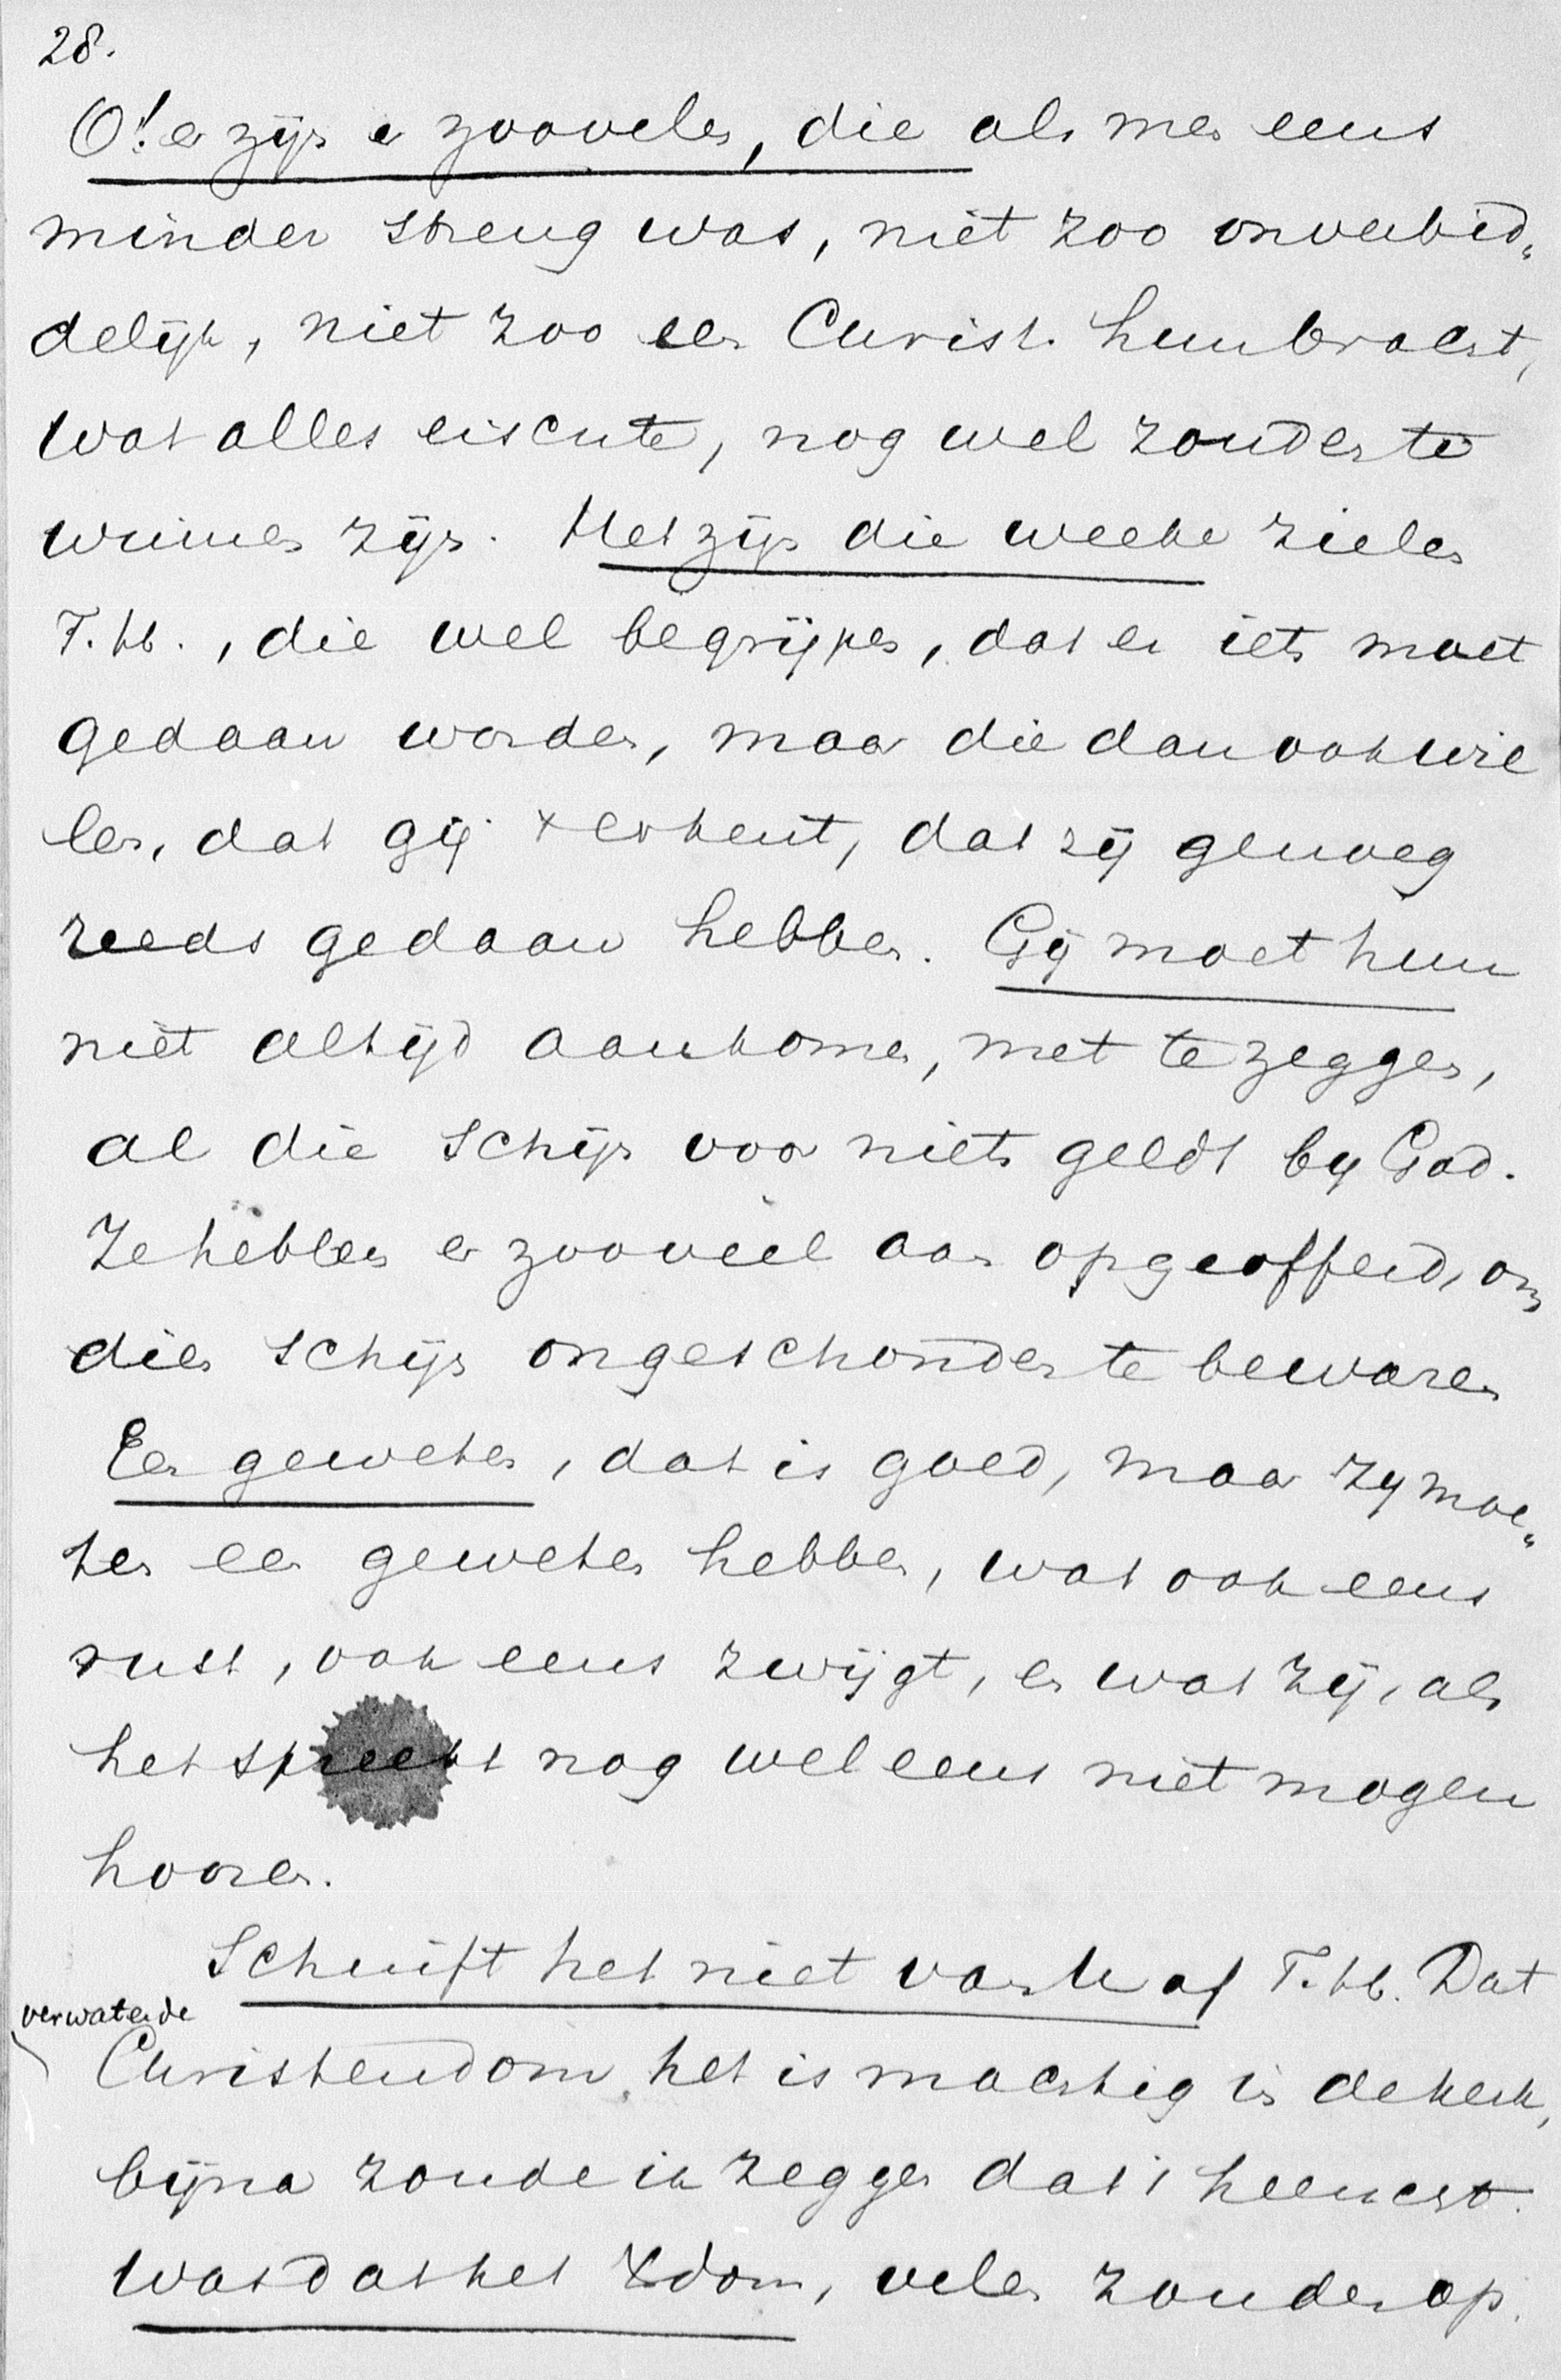 28.
O! er zijn er zoovelen, die als men eens
minder streng was, niet zoo onverbid„
delijk, niet zoo een Christ. hun bracht,
wat alles eischte, nog wel zouden te
winnen zijn. Het zijn die weeke zielen
T. H., die wel begrijpen, dat er iets moet
gedaan worden, maar die dan ook wil
len, dat gij erkent, dat zij genoeg
reeds gedaan hebben. Gij moet hun
niet altijd aankomen, met te zeggen,
al die schijn voor niets geldt by God.
Ze hebben er zooveel aan opgeofferd, om
dien schijn ongeschonden te bewaren
Een geweten, dat is goed, maar zy moe„
ten een geweten hebben, wat ook eens
rust, ook eens zwijgt, en wat zij, als
het spreekt nog wel eens niet mogen
hooren.
Schuift het niet van U af T. H. Dat
verwaterde
Christendom het is machtig in de kerk,
bijna zoude ik zeggen dat 't heerscht.
Was dat het Xdom, velen zouden op